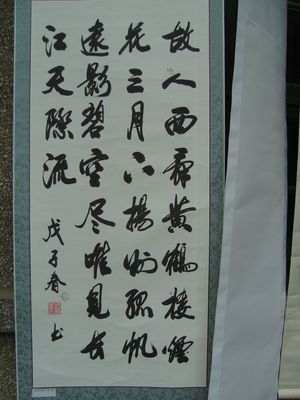 故人西辞黄鶴楼煙
花三月下揚州孤帆
遠影碧空尽唯見长
江天際流
戊子春
书